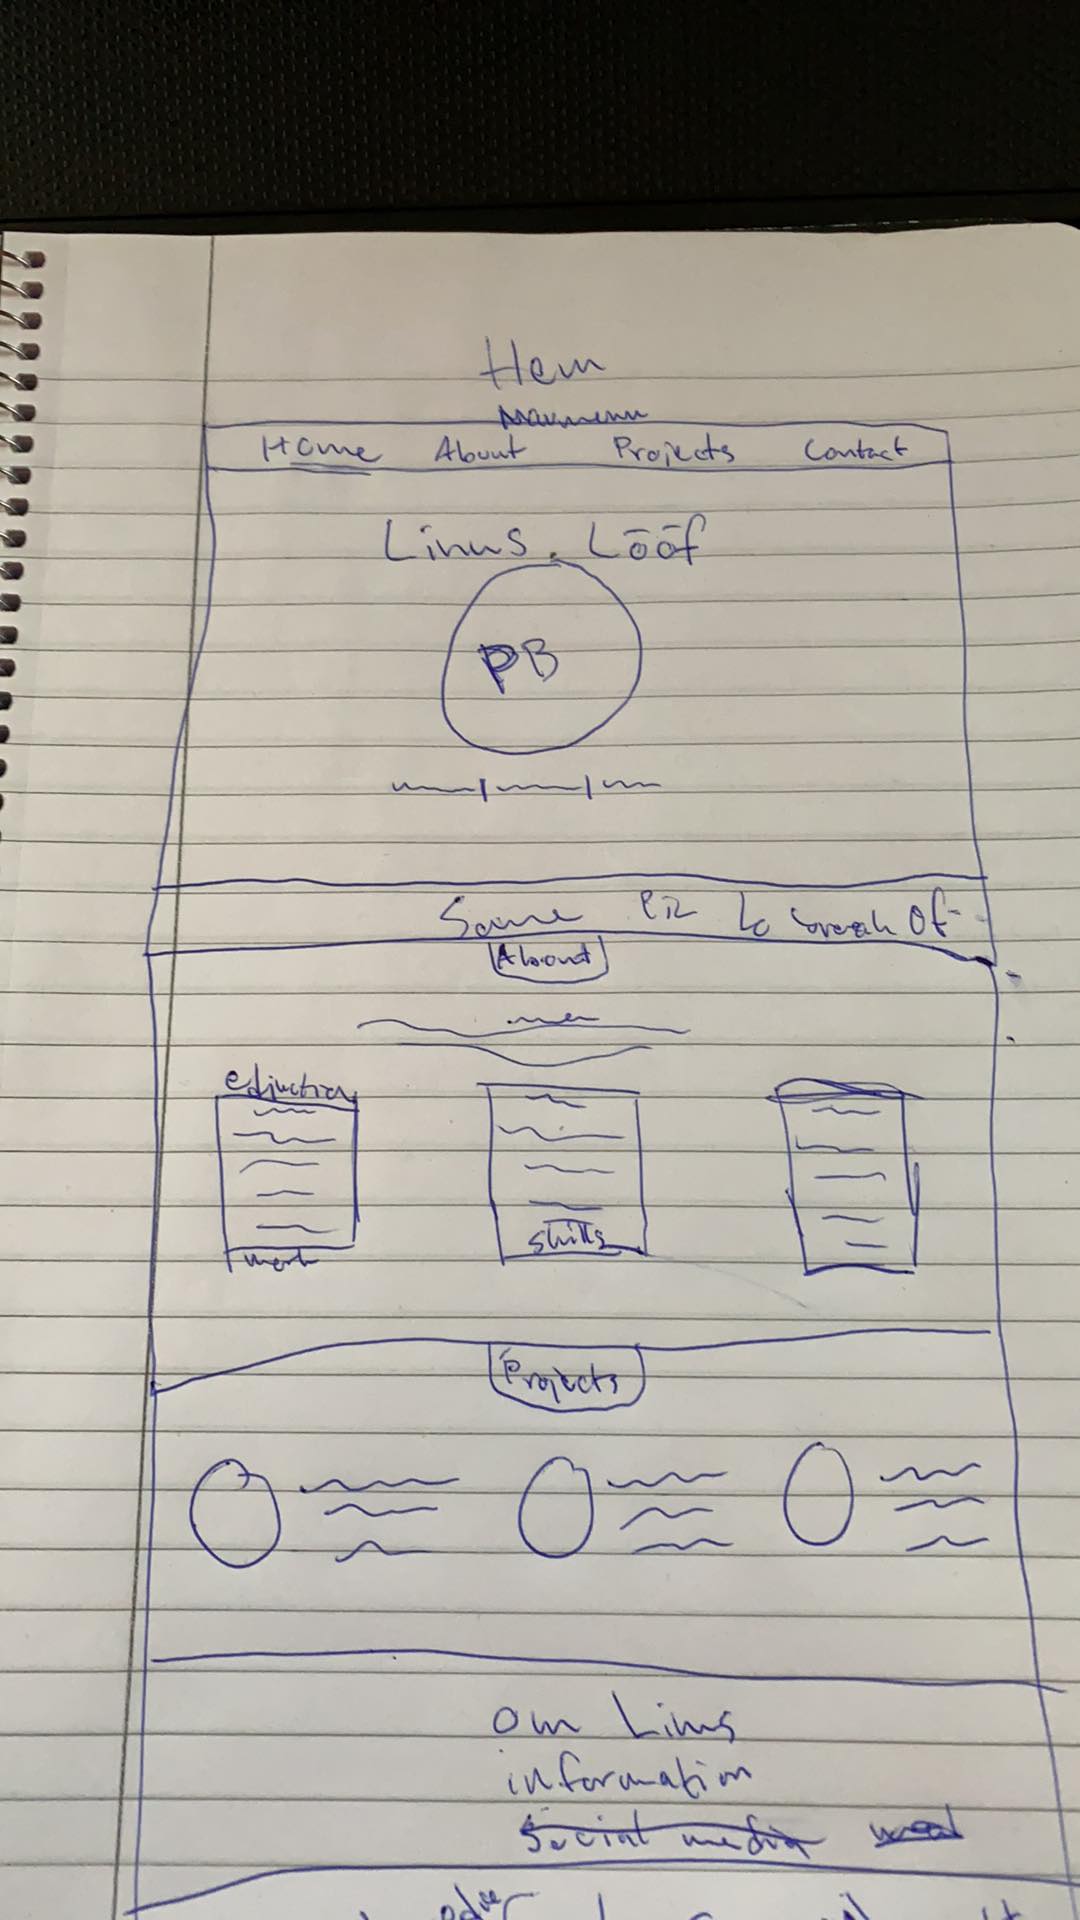 Hem
Navmenu
Home About Projects Contact
Linus. Lööf
PB
Some to break of
About
skills
Projects
om Linus
information
Social media